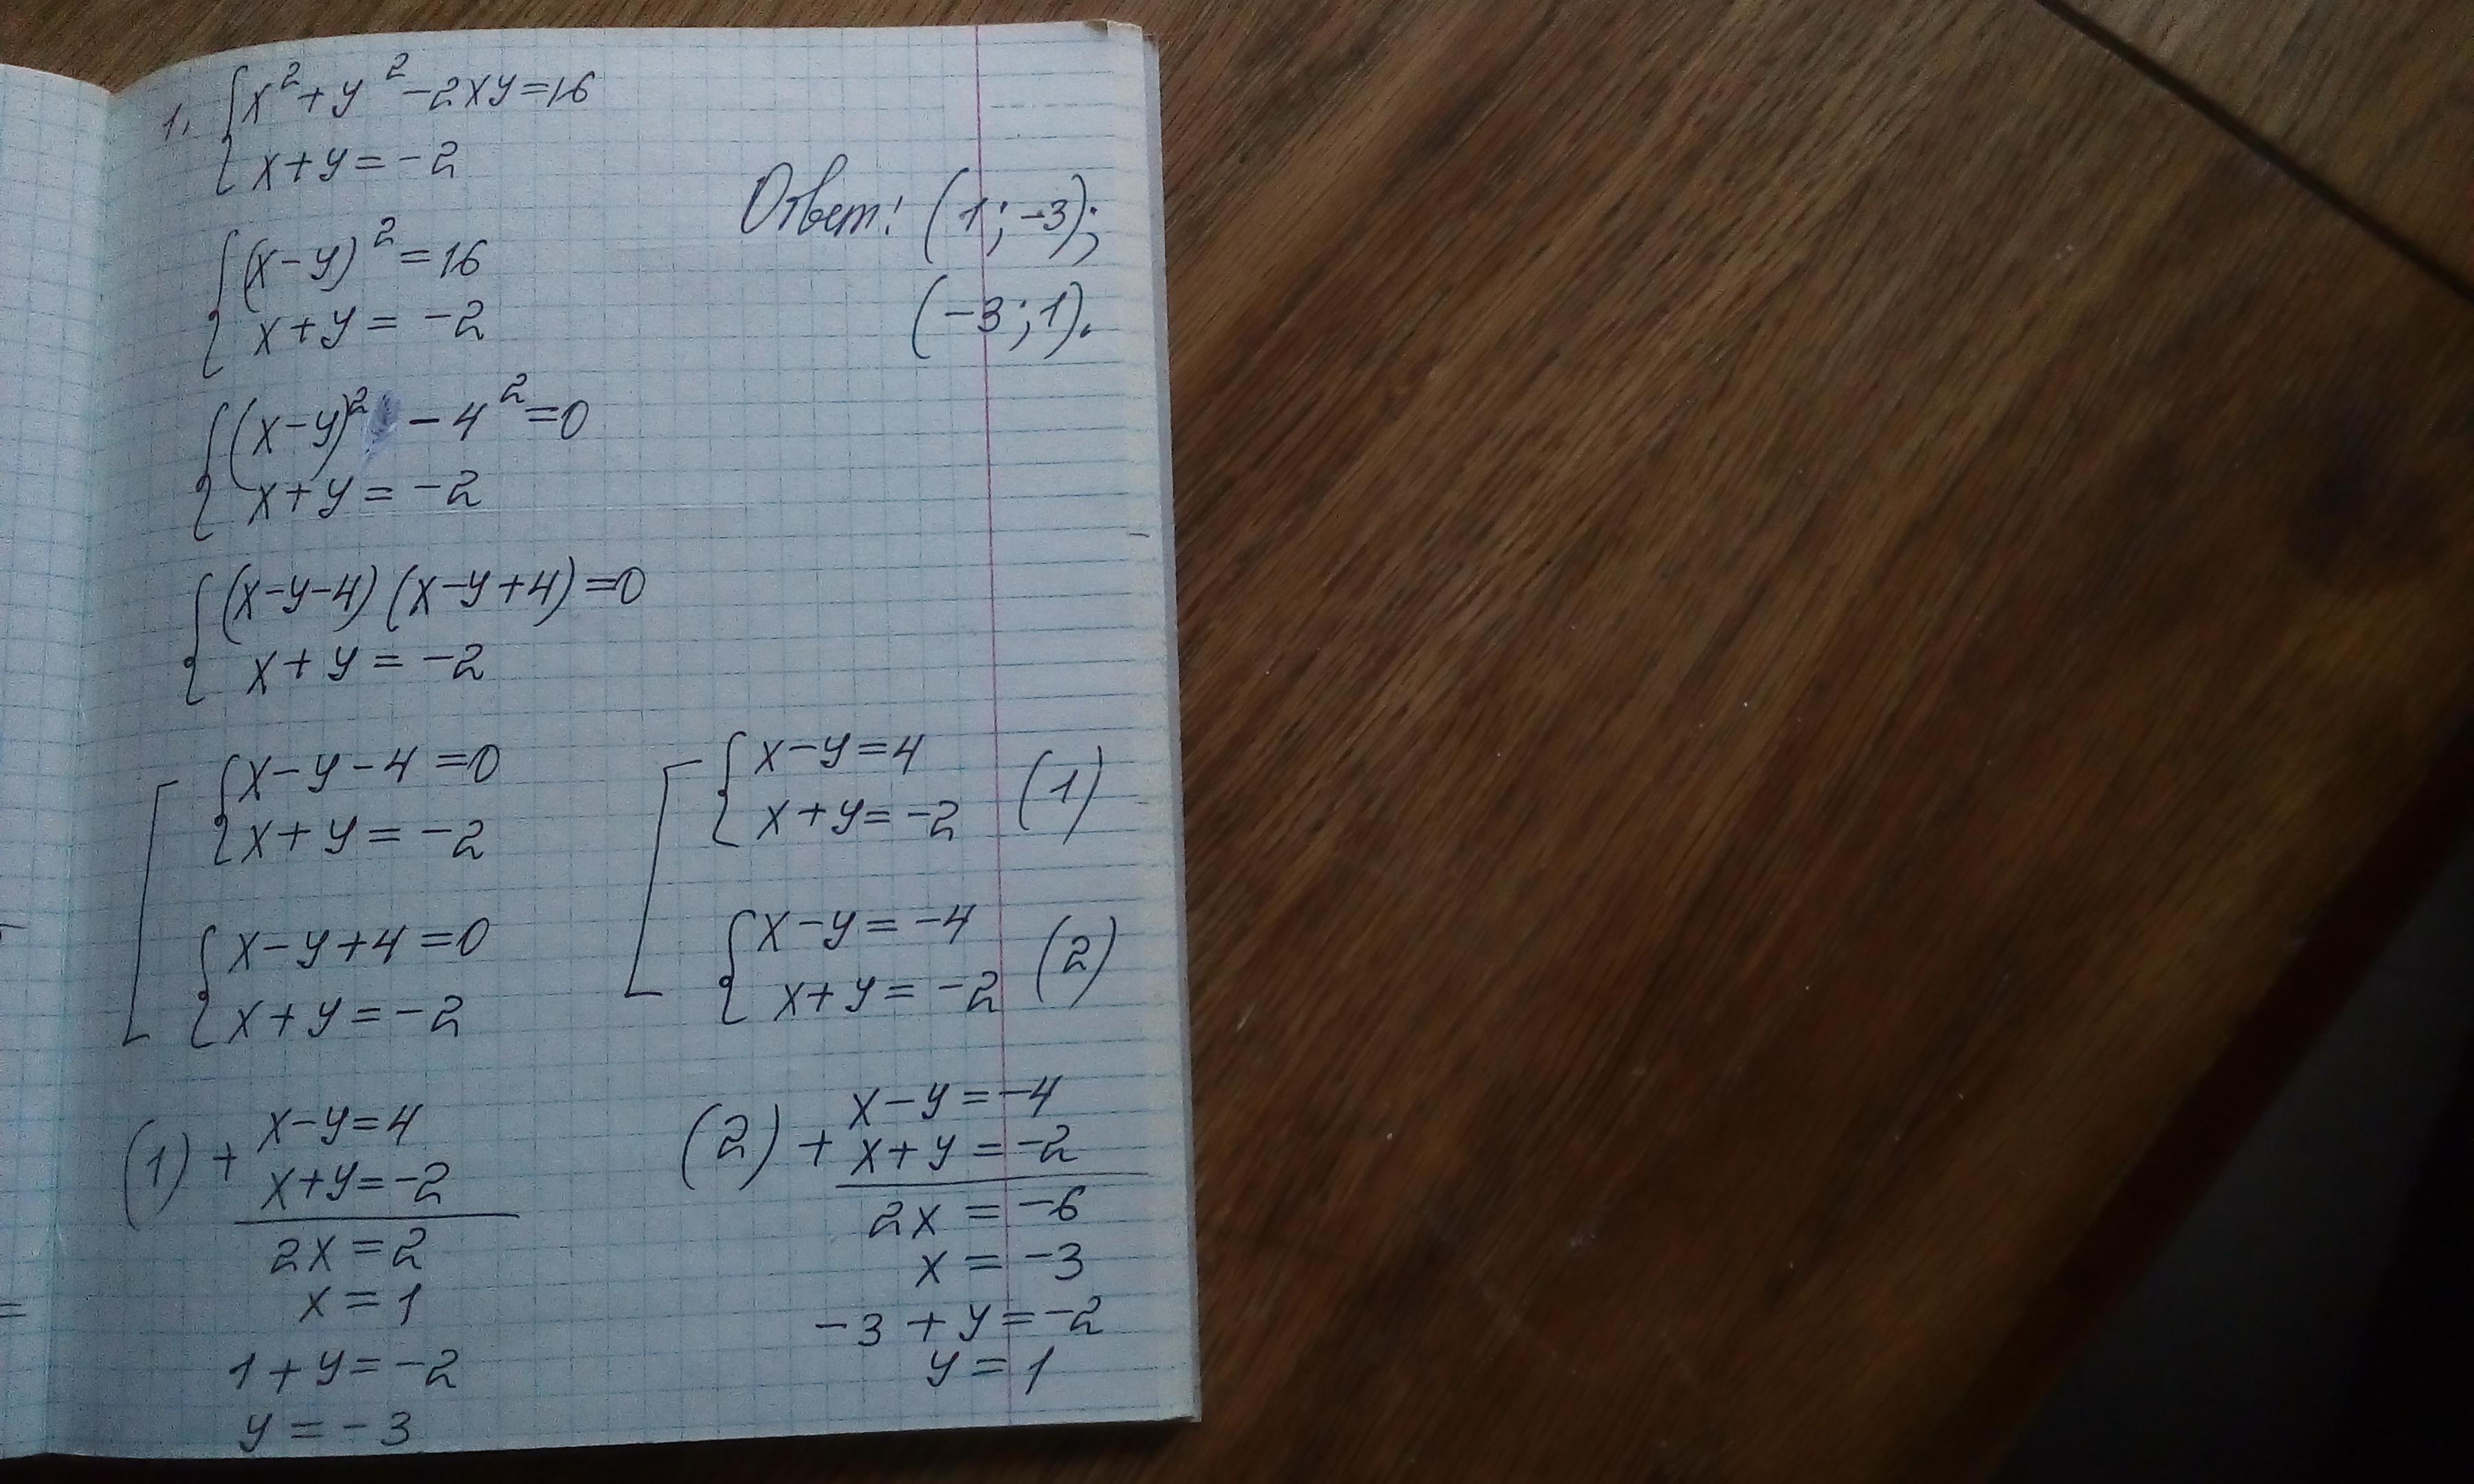 1. { x² + y² - 2xy = 16
x + y = -2
{ (x-y)² = 16
x + y = -2
{ (x-y)² - 4² = 0
x + y = -2
{ (x-y-4) (x-y+4) = 0
x + y = -2
[ { x - y - 4 = 0
x + y = -2
{ x - y + 4 = 0
x + y = -2
[ { x - y = 4
x + y = -2 (1)
{ x - y = -4
x + y = -2 (2)
(1) + x - y = 4
x + y = -2
2x = 2
x = 1
1 + y = -2
y = -3
(2) + x - y = -4
x + y = -2
2x = -6
x = -3
-3 + y = -2
y = 1
Ответ: (1; -3);
(-3; 1).